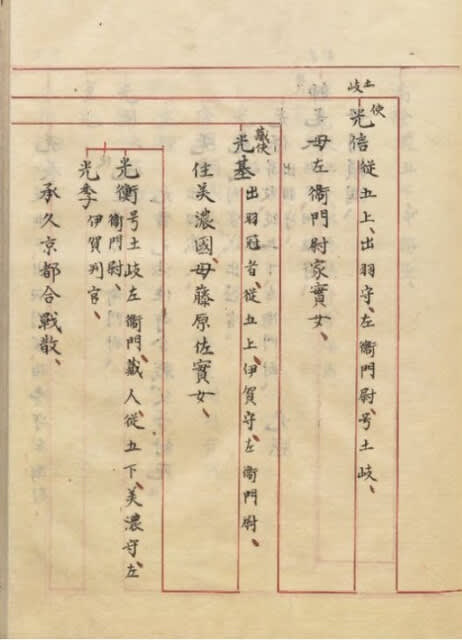 土岐
使
光信 従五上、出羽守、左衞門尉、号土岐、
母左衞門尉家實女、
蔵使
光基 出羽冠者、従五上、伊賀守、左衞門尉、
住美濃國、母藤原佐實女、
光衡 号土岐左衞門、蔵人、従五下、美濃守、左
衞門尉、
光季 伊賀判官、
承久京都合戰散、